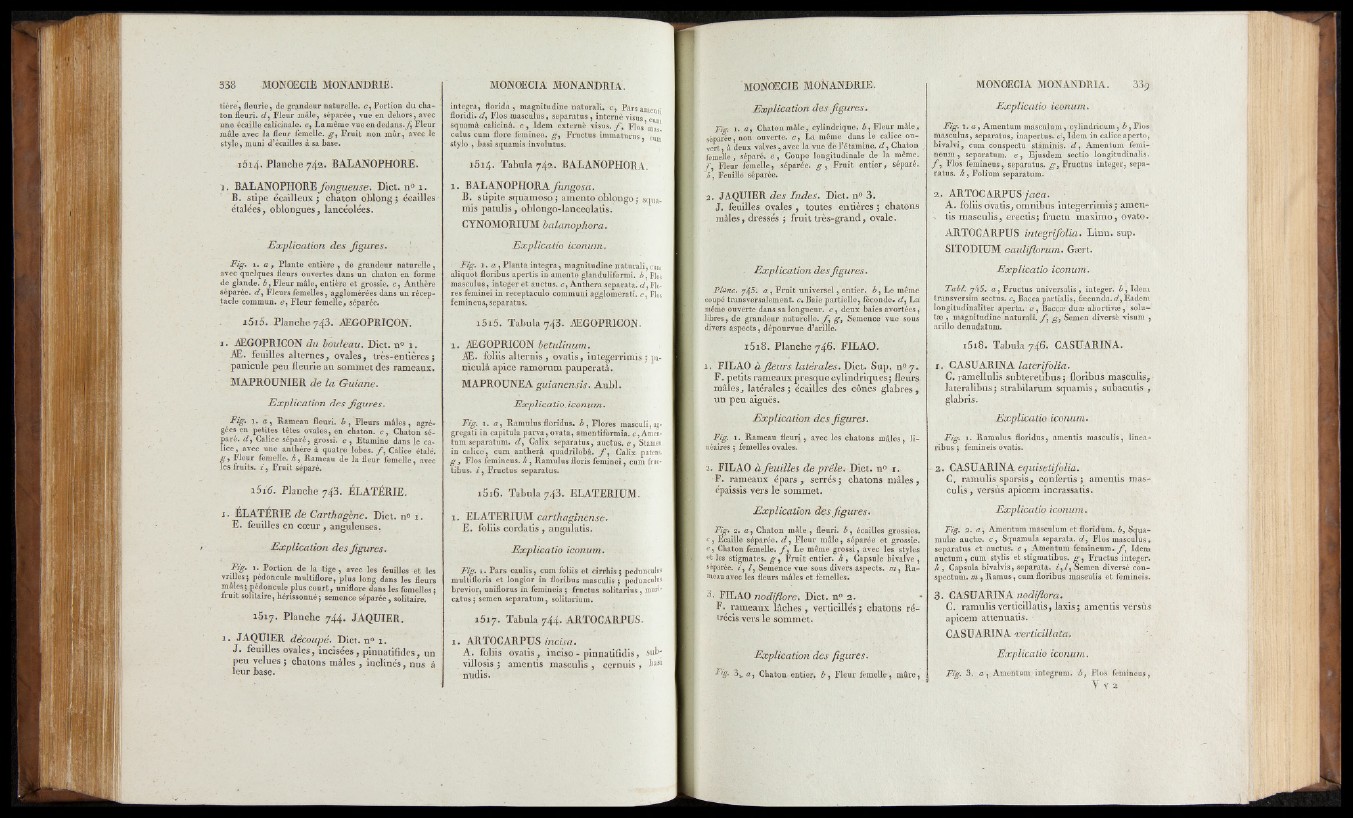 338 MONŒCIE MONANDRIE.
tière, fleurie, de grandeur naturelle. c, Portion du cha-
ton fleuri. d, Fleur mâle, séparée, vue en dehors, avec
une écaille calicinale. e, La même vue en dedans. f, Fleur
mâle avec la fleur femelle. g, Fruit non mûr, avec le
style, muni d'écailles à sa base.
1514. Planche 742. BALANOPHORE.
1. BALANOPHORE fongueuse. Dict. n° 1.
B. stipe écailleux ; chaton oblong ; écailles
étalées, oblongues, lancéolées.
Explication des figures.
Fig. 1. a, Plante entière, de grandeur naturelle,
avec quelques fleurs ouvertes dans un chaton en forme
de glande. b, Fleur mâle, entière et grossie. c, Anthère
séparée. d, Fleurs femelles, agglomérées dans un récep-
tacle commun. e, Fleur femelle, séparée.
1515. Planche 743. ÆGOPRICON.
1. ÆGOPRICON du bouleau. Dict. n° 1.
Æ. feuilles alternes, ovales, très-entières ;
panicule peu fleurie au sommet des rameaux.
MAPROUNIER de la Guiane.
Explication des figures.
Fig. 1. a, Rameau fleuri. b, Fleurs mâles, agré-
gées en petites têtes ovales, en chaton. c, Chaton sé-
paré. d, Calice séparé, grossi. e, Etamine dans le ca-
lice, avec une anthère à quatre lobes. f, Calice étalé.
g, Fleur femelle. h, Rameau de la fleur femelle, avec
les fruits. i, Fruit séparé.
1516. Planche 743. ÉLATÉRIE.
1. ÉLATÉRIE de Carthagène. Dict. n° 1.
E. feuilles en cœur, anguleuses.
Explication des figures.
Fig. 1. Portion de la tige, avec les feuilles et les
vrilles ; pédoncule multiflore, plus long dans les fleurs
mâles ; pédoncule plus court, uniflore dans les femelles ;
fruit solitaire, hérissonné ; semence séparée, solitaire.
1517. Planche 744. JAQUIER.
1. JAQUIER découpé. Dict. n° 1.
J. feuilles ovales, incisées, pinnatifides, un
peu velues ; chatons mâles, inclinés, nus à
leur base.
MONŒCIA MONANDRIA.
integra, florida, magnitudine naturali. c, Pars amenti
floridi. d, Flos masculus, separatus, internè visus, cum
squamâ calicinâ. e, Idem externè visus. f, Flos mas-
culus cum flore femineo. g, Fructus immaturus, cum
stylo, basi squamis involutus.
1514. Tabula 742. BALANOPHORA.
1. BALANOPHORA fungosa.
B. stipite squamoso ; amento oblongo ; squa-
mis patulis, oblongo-lanceolatis.
CYNOMORIUM balanophora.
Explicatio iconum.
Fig. 1. a, Planta integra, magnitudine naturali, cum
aliquot floribus apertis in amento glanduliformi. b, Flos
masculus, integer et auctus. c, Anthera separata. d, Flo-
res feminei in receptaculo communi agglomerati. e, Flos
femineus, separatus.
1515. Tabula 743. ÆGOPRICON.
1. ÆGOPRICON betulinum.
Æ. foliis alternis, ovatis, integerrimis ; pa-
niculâ apice ramorum pauperatâ.
MAPROUNEA guianensis. Aubl.
Explicatio iconum.
Fig. 1. a, Ramulus floridus. b, Flores masculi, ag-
gregati in capitula parva, ovata, amentiformia. c, Amen-
tum separatum. d, Calix separatus, auctus. e, Stamen
in calice, cum antherâ quadrilobâ. f, Calix patens.
g, Flos femineus. h, Ramulus floris feminei, cum fruc-
tibus. i, Fructus separatus.
1516. Tabula 743. ELATERIUM.
1. ELATERIUM carthaginense.
E. foliis cordatis, angulatis.
Explicatio iconum.
Fig. 1. Pars caulis, cum foliis et cirrhis ; pedunculus
multifloris et longior in floribus masculis ; pedunculus
brevior, uniflorus in femineis ; fructus solitarius, muri-
catus ; semen separatum, solitarium.
1517. Tabula 744. ARTOCARPUS.
1. ARTOCARPUS incisa.
A. foliis ovatis, inciso-pinnatifidis, sub-
villosis ; amentis masculis, cernuis, basi
nudis.
MONŒCIE MONANDRIE.
Explication des figures.
Fig. 1. a, Chaton mâle, cylindrique. b, Fleur mâle,
séparée, non ouverte. c, La même dans le calice ou-
vert, à deux valves, avec la vue de l'étamine. d, Chaton
femelle, séparé. e, Coupe longitudinale de la même.
f, Fleur femelle, séparée. g, Fruit entier, séparé.
h, Feuille séparée.
2. JAQUIER des Indes. Dict. n° 3.
J. feuilles ovales, toutes entières ; chatons
mâles, dressés ; fruit très-grand, ovale.
Explication des figures.
Planc. 745. a, Fruit universel, entier. b, Le même
coupé transversalement. c, Baie partielle, féconde. d, La
même ouverte dans sa longueur. e, deux baies avortées,
libres, de grandeur naturelle. f, g, Semence vue sous
divers aspects, dépourvue d'arille.
1518. Planche 746. FILAO.
1. FILAO à fleurs latérales. Dict. Sup. n° 7.
F. petits rameaux presque cylindriques ; fleurs
mâles, latérales ; écailles des cônes glabres,
un peu aiguës.
Explication des figures.
Fig. 1. Rameau fleuri, avec les chatons mâles, li-
néaires ; femelles ovales.
2. FILAO à feuilles de prêle. Dict. n° 1.
F. rameaux épars, serrés ; chatons mâles,
épaissis vers le sommet.
Explication des figures.
Fig. 2. a, Chaton mâle, fleuri. b, écailles grossies.
c, Écaille séparée. d, Fleur mâle, séparée et grossie.
e, Chaton femelle. f, Le même grossi, avec les styles
et les stigmates. g, Fruit entier. h, Capsule bivalve,
séparée. i, l, Semence vue sous divers aspects. m, Ra-
meau avec les fleurs mâles et femelles.
3. FILAO nodiflore. Dict. n° 2.
F. rameaux lâches, verticillés ; chatons ré-
trécis vers le sommet.
Explication des figures.
Fig. 3. a, Chaton entier. b, Fleur femelle, mûre,
MONŒCIA MONANDRIA. 339
Explicatio iconum.
Fig. 1. a, Amentum masculum, cylindricum, b, Flos
masculus, separatus, inapertus. c, Idem in calice aperto,
bivalvi, cum conspectu staminis. d, Amentum femi-
neum, separatum. e, Ejusdem sectio longitudinalis.
f, Flos femineus, separatus. g, Fructus integer, sepa-
ratus. h, Folium separatum.
2. ARTOCARPUS jaca.
A. foliis ovatis, omnibus integerrimis ; amen-
tis masculis, erectis ; fructu maximo, ovato.
ARTOCARPUS integrifolia. Linn. sup.
SITODIUM cauliflorum. Gært.
Explicatio iconum.
Tabl. 745. a, Fructus universalis, integer. b, Idem
transversim sectus. c, Bacca partialis, fecunda. d, Eadem
longitudinaliter aperta. e, Baccæ duæ abortivæ, solu-
tæ, magnitudine naturali. f, g, Semen diversè visum,
arillo denudatum.
1518. Tabula 746. CASUARINA.
1. CASUARINA laterifolia.
C. ramellulis subteretibus ; floribus masculis,
lateralibus ; strabilarum squamis, subacutis,
glabris.
Explicatio iconum.
Fig. 1. Ramulus floridus, amentis masculis, linea-
ribus ; femineis ovatis.
2. CASUARINA equisetifolia.
C. ramulis sparsis, confertis ; amentis mas-
culis, versùs apicem incrassatis.
Explicatio iconum.
Fig. 2. a, Amentum masculum et floridum. b, Squa-
mulæ auctæ. c, Squamula separata. d, Flos masculus,
separatus et auctus. e, Amentum femineum. f, Idem
auctum, cum stylis et stigmatibus. g, Fructus integer.
h, Capsula bivalvis, separata. i, l, Semen diversè con-
spectum. m, Ramus, cum floribus masculis et femineis.
3. CASUARINA nodiflora.
C. ramulis verticillatis, laxis ; amentis versùs
apicem attenuatis.
CASUARINA verticillata.
Explicatio iconum.
Fig. 3. a, Amentum integrum. b, Flos femineus,
V v 2